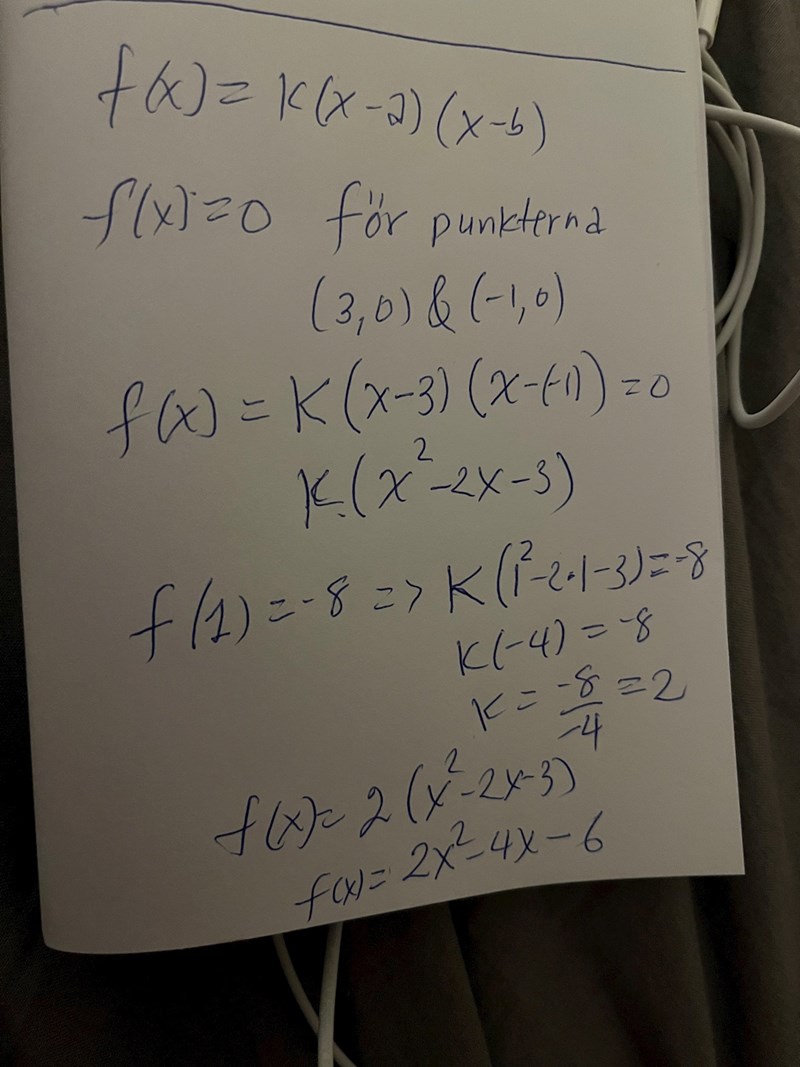 f(x) = K(x-a)(x-b)
f(x) = 0 för punkterna
(3,0) & (-1,0)
f(x) = K(x-3)(x-(-1)) = 0
K(x²-2x-3)
f(1) = -8 => K(1²-2·1-3) = -8
K(-4) = -8
K = -8/-4 = 2
f(x) = 2(x²-2x-3)
f(x) = 2x²-4x-6